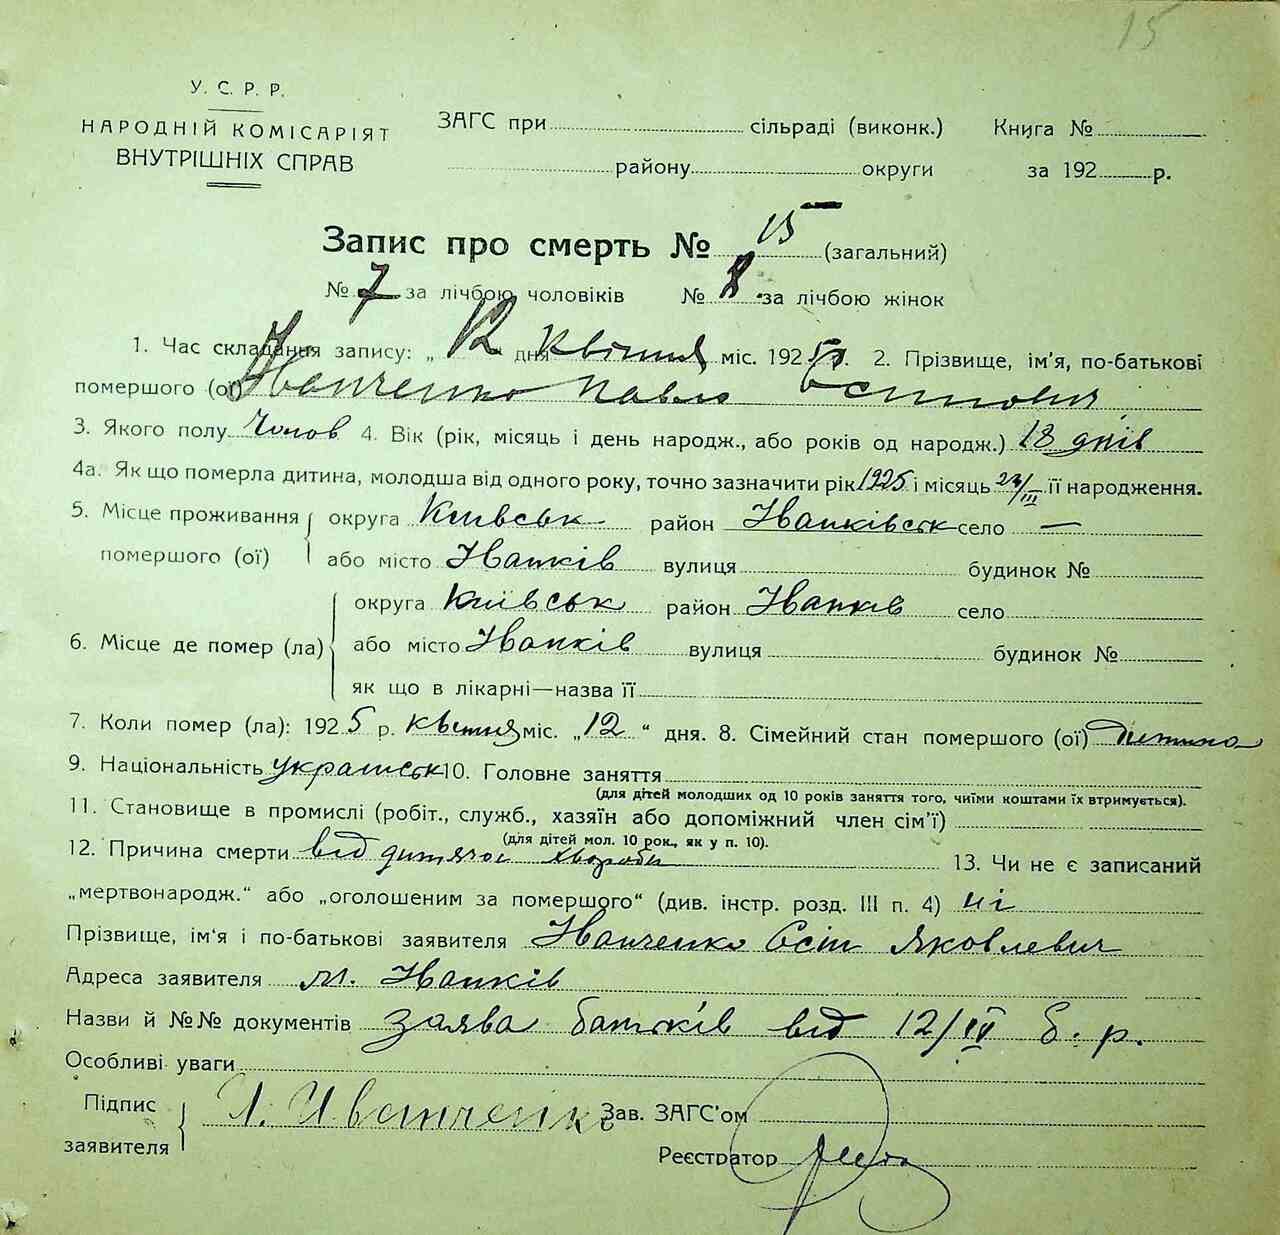 15
У. С. Р. Р.
НАРОДНІЙ КОМІСАРІЯТ
ВНУТРІШНІХ СПРАВ
ЗАГС при сільраді (виконк.) Книга №
району округи за 192 р.
Запис про смерть № 15 (загальний)
№ 7 за лічбою чоловіків № 8 за лічбою жінок
1. Час складання запису: „ 12 дня квітня міс. 1925 2. Прізвище, ім'я, по-батькові
помершого (ої) Іванченко Павло Осипович
3. Якого полу Чолов 4. Вік (рік, місяць і день народж., або років од народж.) 18 днів
4а. Як що померла дитина, молодша від одного року, точно зазначити рік 1925 і місяць /III її народження.
5. Місце проживання помершого (ої) округа Київськ район Іванківськ село —
або місто Іванків вулиця будинок №
6. Місце де помер (ла) округа Київськ район Іванків село
або місто Іванків вулиця будинок №
як що в лікарні—назва її
7. Коли помер (ла): 1925 р. квітня міс. „12“ дня. 8. Сімейний стан помершого (ої) дитина
9. Національність українськ 10. Головне заняття
(для дітей молодших од 10 років заняття того, чиїми коштами їх втримується).
11. Становище в промислі (робіт., служб., хазяїн або допоміжний член сім'ї)
(для дітей мол. 10 рок., як у п. 10).
12. Причина смерти від дитячої хвороби 13. Чи не є записаний
„мертвонародж.“ або „оголошеним за помершого“ (див. інстр. розд. III п. 4) ні
Прізвище, ім'я і по-батькові заявителя Іванченко Осіп Яковлевич
Адреса заявителя м. Іванків
Назви й №№ документів заява батьків від 12/IV б. р.
Особливі уваги
Підпис заявителя Іванченко Зав. ЗАГС'ом
Реєстратор